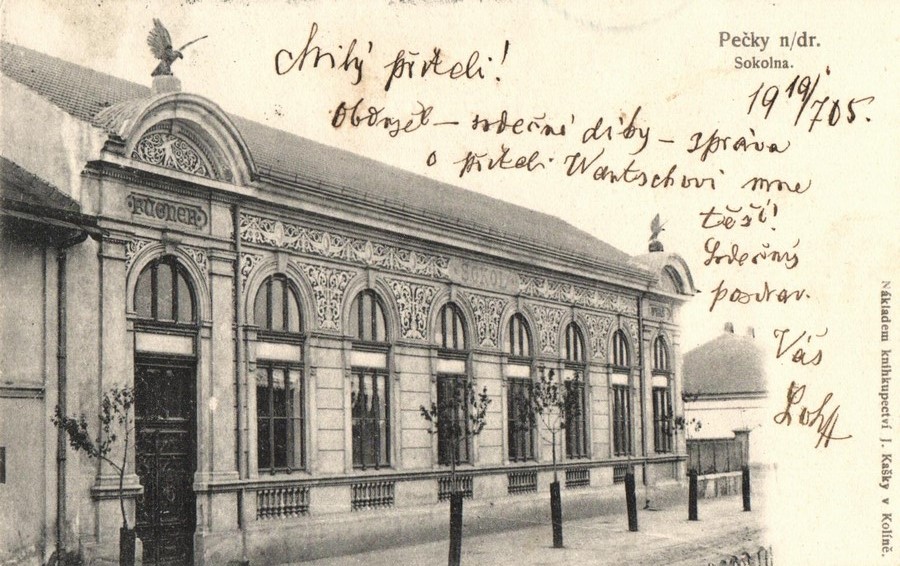 Pečky n/dr.
Sokolna.
19 19/I 705.
Milý příteli!
Obdržel – srdečné díky – zpráva
o příteli Wantschovi mne
těší!
Srdečný
pozdrav.
Váš
FÜGNER
SOKOL
Nákladem knihkupectví J. Kašky v Kolíně.